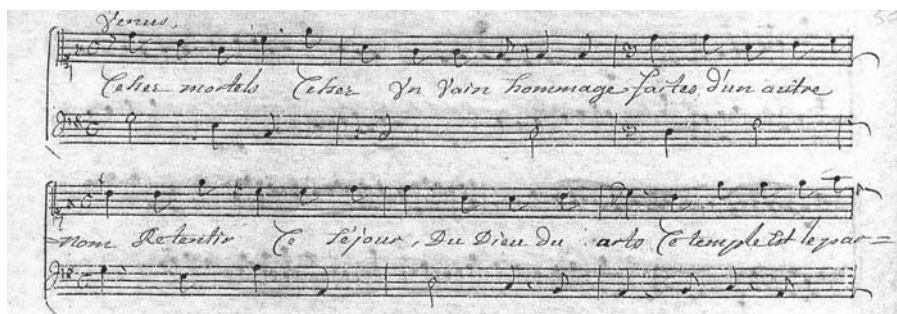 Venus,
Cesser mortels Cesser Un Vain hommage faites d'un autre
=nom Retentir Ce Séjour, Du Dieu du arts Ce temple Est le par=